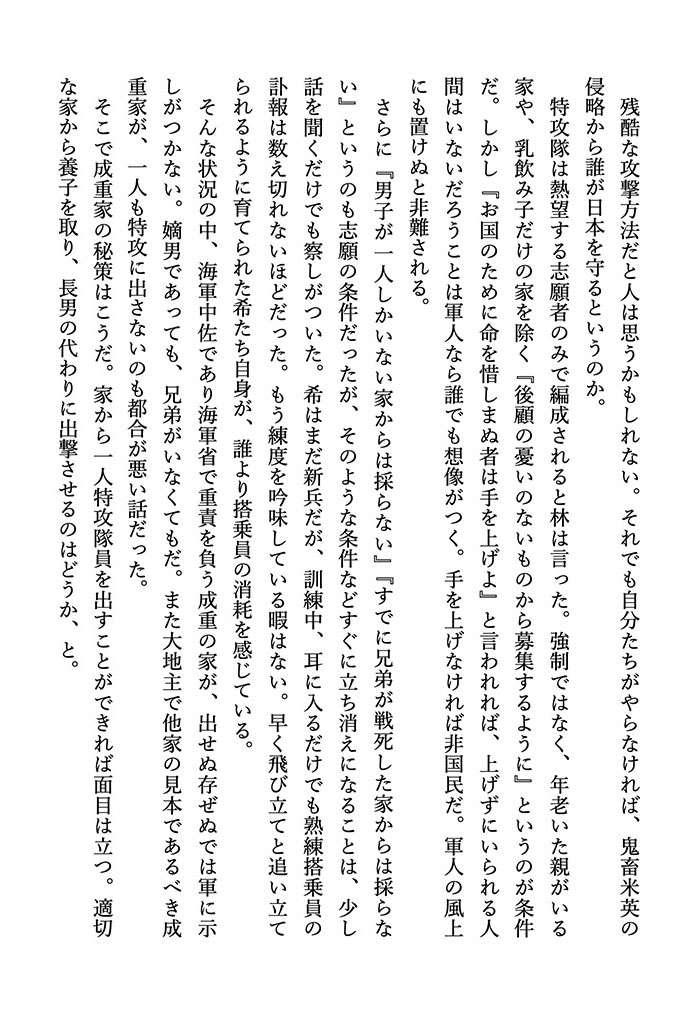 残酷な攻撃方法だと人は思うかもしれない。それでも自分たちがやらなければ、鬼畜米英の
侵略から誰が日本を守るというのか。
　特攻隊は熱望する志願者のみで編成されると林は言った。強制ではなく、年老いた親がいる
家や、乳飲み子だけの家を除く『後顧の憂いのないものから募集するように』というのが条件
だ。しかし『お国のために命を惜しまぬ者は手を上げよ』と言われれば、上げずにいられる人
間はいないだろうことは軍人なら誰でも想像がつく。手を上げなければ非国民だ。軍人の風上
にも置けぬと非難される。
　さらに『男子が一人しかいない家からは採らない』『すでに兄弟が戦死した家からは採らな
い』というのも志願の条件だったが、そのような条件などすぐに立ち消えになることは、少し
話を聞くだけでも察しがついた。希はまだ新兵だが、訓練中、耳に入るだけでも熟練搭乗員の
訃報は数え切れないほどだった。もう練度を吟味している暇はない。早く飛び立てと追い立て
られるように育てられた希たち自身が、誰より搭乗員の消耗を感じている。
　そんな状況の中、海軍中佐であり海軍省で重責を負う成重の家が、出せぬ存ぜぬでは軍に示
しがつかない。嫡男であっても、兄弟がいなくてもだ。また大地主で他家の見本であるべき成
重家が、一人も特攻に出さないのも都合が悪い話だった。
　そこで成重家の秘策はこうだ。家から一人特攻隊員を出すことができれば面目は立つ。適切
な家から養子を取り、長男の代わりに出撃させるのはどうか、と。